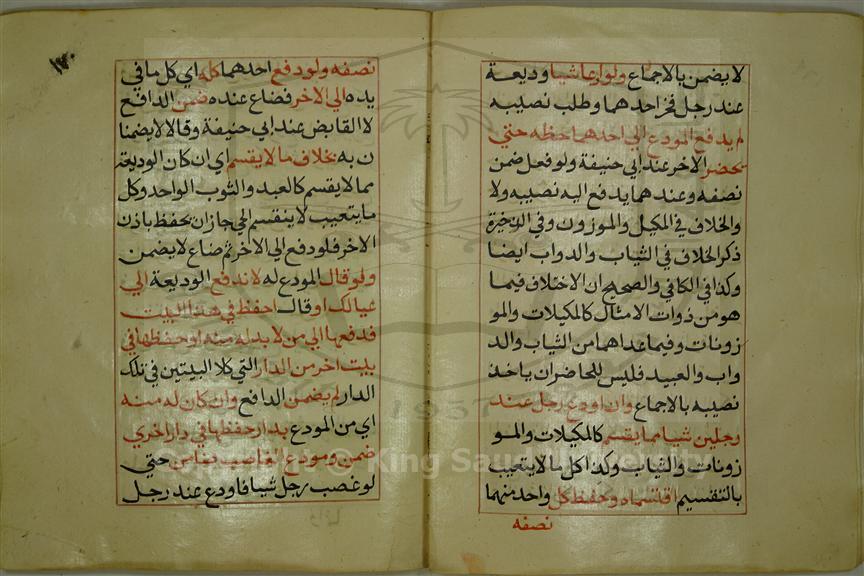 لا يضمن بالاجماع ولو اودعا شيا وديعة
عند رجل فحضر احدهما وطلب نصيبه
لم يدفع المودع الي احدهما حظه حتي
يحضر الاخر عند ابي حنيفة ولو فعل ضمن
نصفه وعندهما يدفع اليه نصيبه ولا
والخلاف في المكيل والموزون وفي الذخيرة
ذكر الخلاف في الثياب والدواب ايضا
وكذا في الكافي والصحيح ان الاختلاف فيما
هو من ذوات الامثال كالمكيلات والمو
زونات وفيما عداهما من الثياب والد
واب والعبيد فليس للحاضر ان ياخذ
نصيبه بالاجماع وان اودع رجل عند
رجلين شيا مما يقسم كالمكيلات والمو
زونات والثياب وكذا كل ما لا يتعيب
بالتقسيم اقتسماه وحفظ كل واحد منهما
نصفه
١٧٠
نصفه ولو دفع احدهما كله اي كل ما في
يده الي الاخر فضاع عنده ضمن الدافع
لا القابض عند ابي حنيفة وقالا لا يضمنا
ن به بخلاف ما لا يقسم اي ان كان الوديعة
مما لا يقسم كالعبد والثوب الواحد وكل
ما يتعيب لا ينقسم الي جاز ان يحفظ باذن
الاخر فلو دفع الي الاخر ثم ضاع لا يضمن
ولو قال المودع له لا تدفع الوديعة الي
عيالك او قال احفظ في هذا البيت
فدفعها الي من لا بد له منه او حفظها في
بيت اخر من الدار التي كلا البيتين في تلك
الدار لم يضمن الدافع وان كان له منه
اي من المودع بد او حفظها في دار اخري
ضمن ومودع الغاصب ضامن حتي
لو غصب رجل شيا فاودع عند رجل